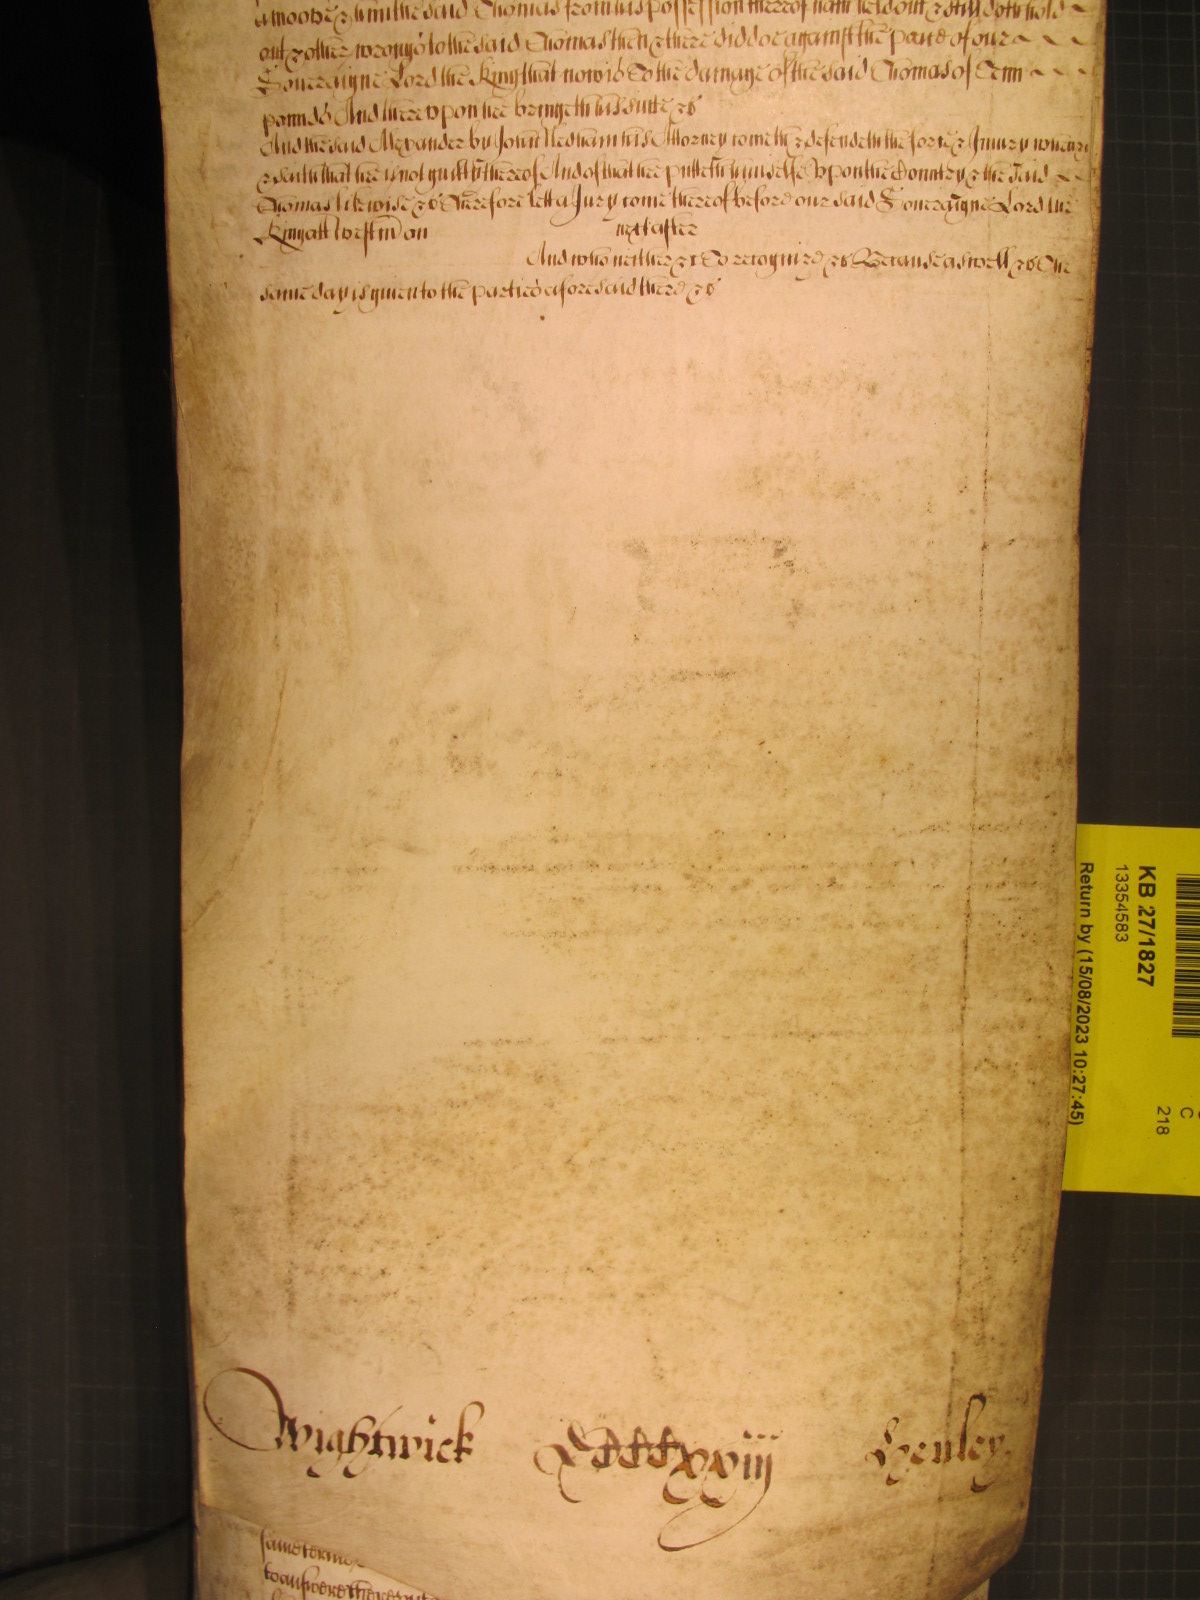 amoved & him the said Thomas from his possession thereof hath held out & still doth hold
out & other wrongs to the said Thomas then & there did doe against the peace of our
Soveraigne Lord the King that now is To the damage of the said Thomas of Tenn
pounds And thereupon hee bringeth his suite &c
And the said Alexander by John Nedham his Attorney cometh & defendeth the force & Injury when &c
& saith that hee is not guilty thereof And of that hee putteth himselfe Upon the Country & the said
Thomas likewise &c Therefore lett a Jury come thereof before our said Soveraigne Lord the
King att Westm on next after
And who neither &c To recognize &c Because aswell &c The
same day is given to the parties aforesaid there &c
KB 27/1827
13354583
Return by (15/08/2023 10:27:45)
C
218
Wightwick CCCCxxiij Henley
same terme
to answere